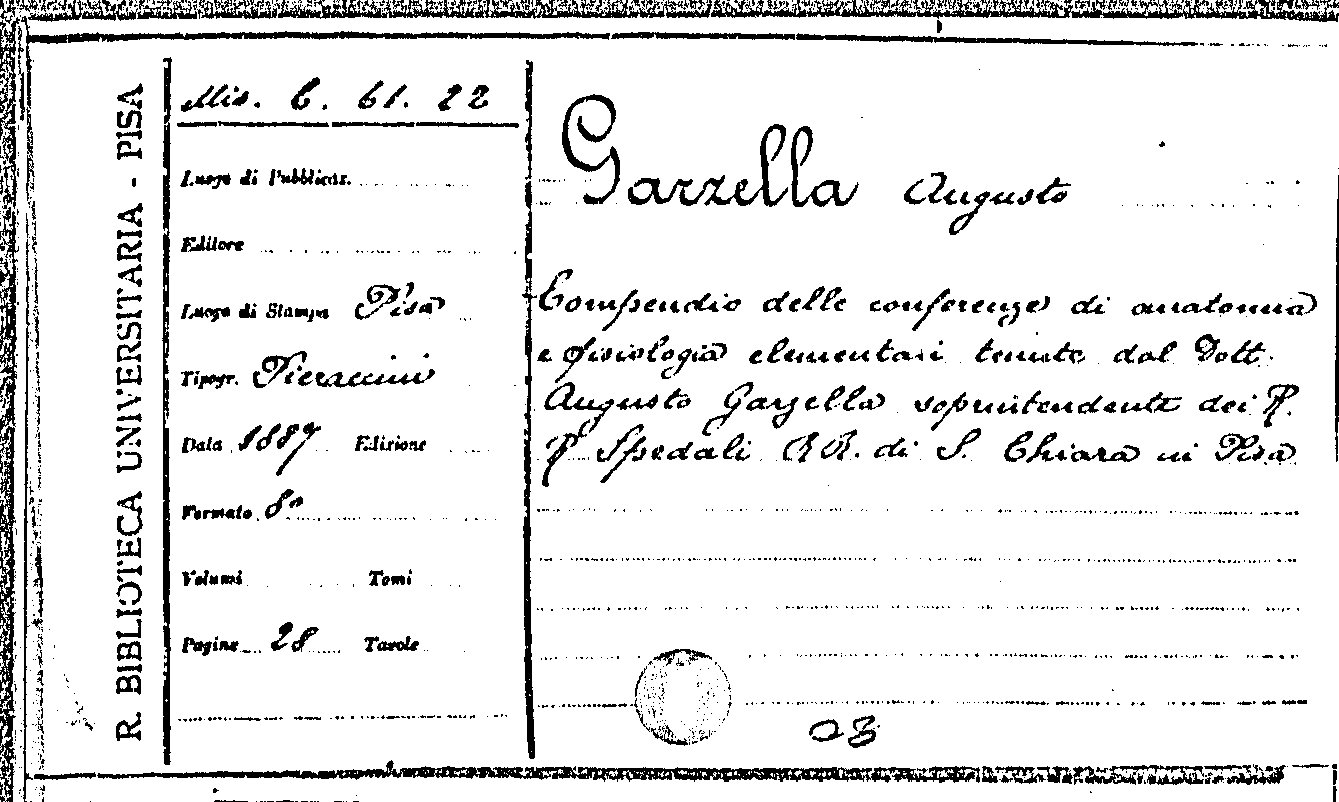 R. BIBLIOTECA UNIVERSITARIA - PISA
Mis. C. 61. 22
Luogo di Pubblicaz.
Editore
Luogo di Stampa Pisa
Tipogr. Pieraccini
Data 1887 Edizione
Formato 8°
Volumi Tomi
Pagine 28 Tavole
Garzella Augusto
Compendio delle conferenze di anatomia
e fisiologia elementari tenute dal Dott.
Augusto Garzella soprintendente dei R.
R. Spedali RR. di S. Chiara in Pisa